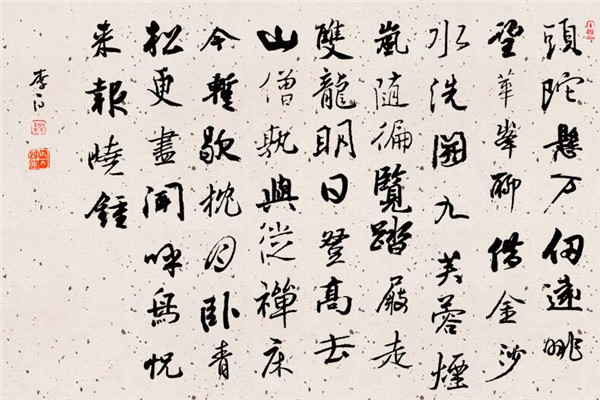 頭陀懸万仞遠眺
望華峯聊借金沙
水洗開九芙蓉煙
嵐隨徧覽踏屐走
雙龍明日登高去
山僧孰與從禪床
今暫歇枕月臥青
松更盡聞呼鳥恍
来報曉鍾
李白